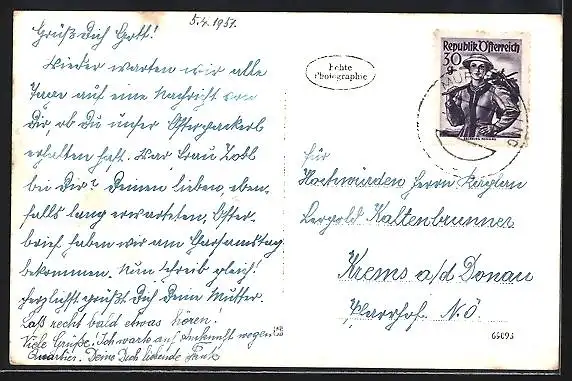 5.4.1951.
Grüß Dich Gott!
Wieder warten wir alle
Tage auf eine Nachricht von
Dir, ob Du unser Osterpackerl
erhalten hast. War Frau Zobl
bei Dir? Deinen lieben, eben-
falls lang erwarteten, Oster-
brief haben wir am Charsamstag
bekommen. Nun schreib gleich!
Herzlichst grüßt Dich Deine Mutter.
Laß recht bald etwas hören!
Viele Grüße. Ich warte auf wegen
Quartier. Deine Dich liebende
Echte
Photographie
Republik Österreich
30
g
Für
Hochwürden Herrn
Leopold Kaltenbrunner
Krems a/d Donau
Pfarrhof. N.Ö.
65093